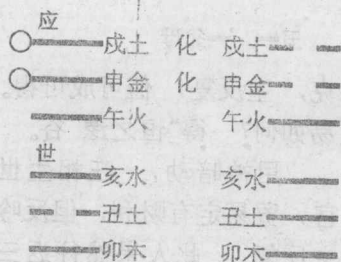 应
戍土 化 戍土
申金 化 申金
午火 午火
世
亥水 亥水
丑土 丑土
卯木 卯木